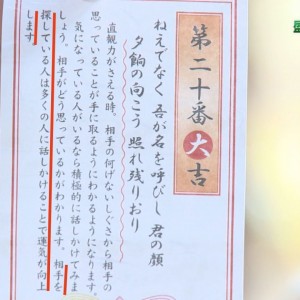 第二十番大吉
ねえでなく 吾が名を呼びし 君の顔
夕餉の向こう 照れ残りおり
直観力がさえる時。相手の何げないしぐさから相手の
思っていることが手に取るようにわかるようになります。
気になっている人がいるなら積極的に話しかけてみま
しょう。相手がどう思っているかがわかります。相手を
探している人は多くの人に話しかけることで運気が向上
します